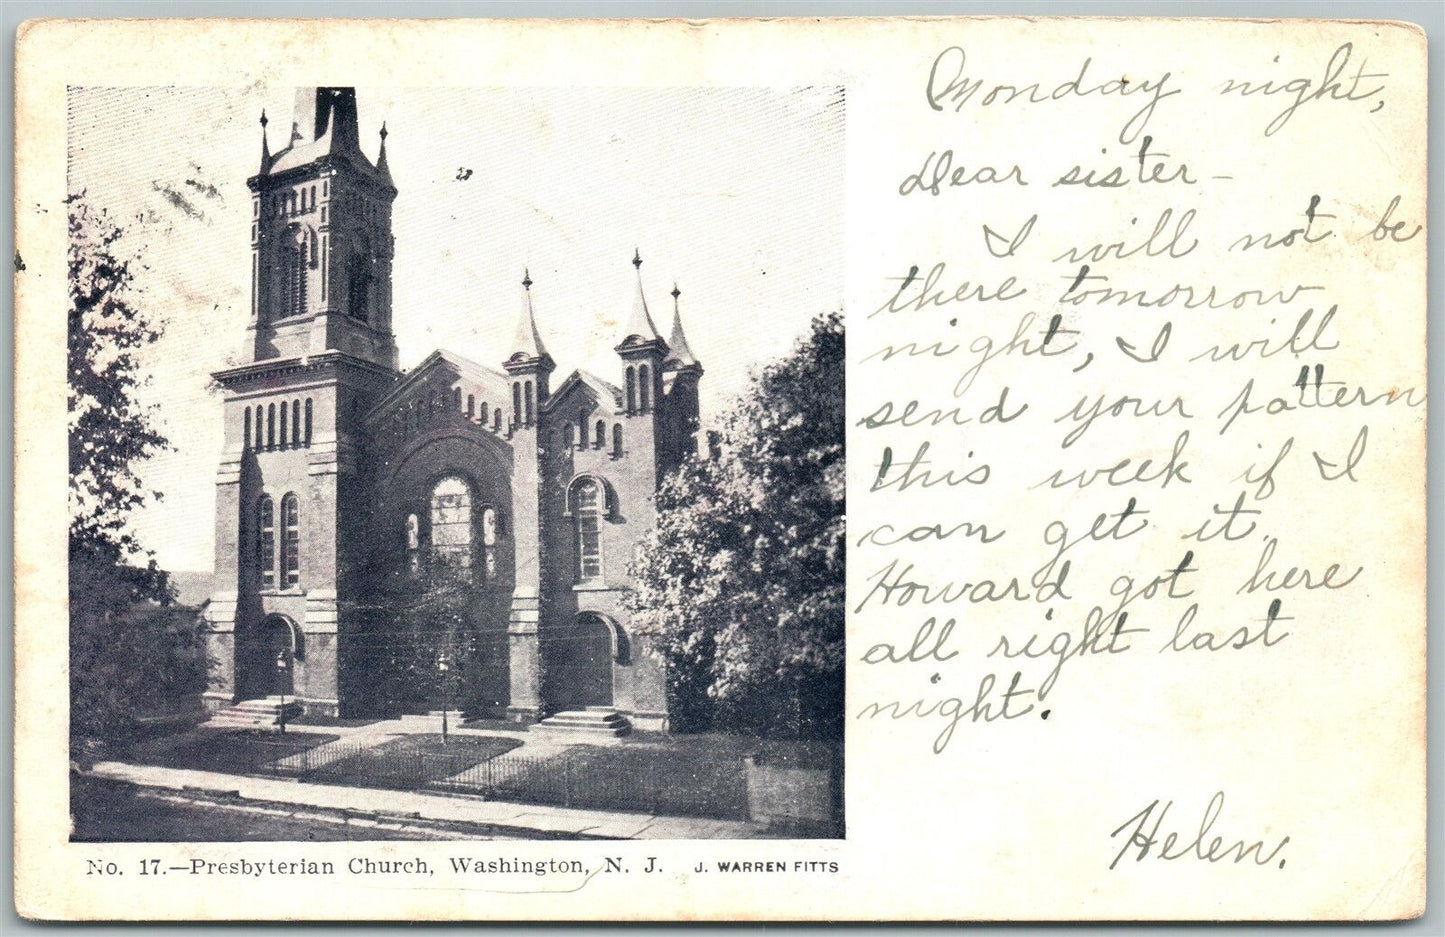 Monday night,
Dear sister -
I will not be
there tomorrow
night, I will
send your pattern
this week if I
can get it.
Howard got here
all right last
night.
Helen.
No. 17.—Presbyterian Church, Washington, N. J. J. WARREN FITTS